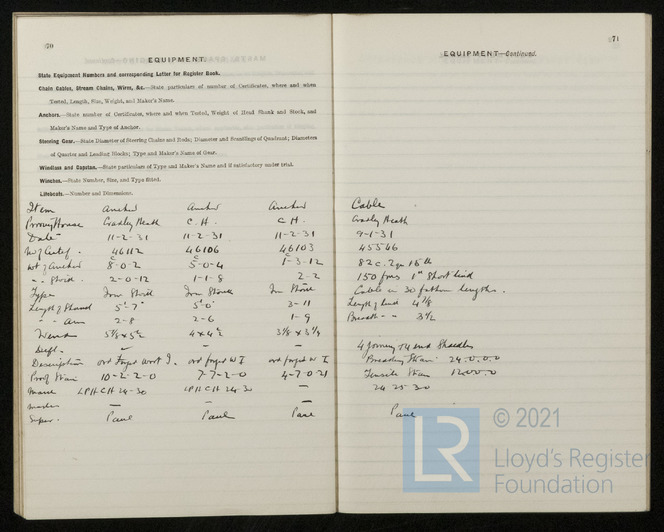 70
EQUIPMENT.
State Equipment Numbers and corresponding Letter for Register Book.
Chain Cables, Stream Chains, Wires, &c.—State particulars of number of Certificates, where and when
Tested, Length, Size, Weight, and Maker's Name.
Anchors.—State number of Certificates, where and when Tested, Weight of Head Shank and Stock, and
Maker's Name and Type of Anchor.
Steering Gear.—State Diameter of Steering Chains and Rods; Diameter and Scantlings of Quadrant; Diameters
of Quarter and Leading Blocks; Type and Maker's Name of Gear.
Windlass and Capstan.—State particulars of Type and Maker's Name and if satisfactory under trial.
Winches.—State Number, Size, and Type fitted.
Lifeboats.—Number and Dimensions.
Item Anchor Anchor Anchor
Proving House Cradley Heath C.H. C.H.
Date 11-2-31 11-2-31 11-2-31
No of Certif. 46112 46106 46103
Wt of Anchor 8-0-2 5-0-4 1-3-12
2-0-12 1-1-8 2-2
Type Iron Iron Iron
Length of Shank 5'-7" 5'0" 3-11
Arm 2-8 2-6 1-9
5⅛ x 5½ 4 x 4½
Description
Proof Strain 10-2-2-0 7-7-2-0 4-7-0-21
LPHCH 24-30 LPHCH 24-30 —
Super. Paul Paul Paul
71
EQUIPMENT—Continued.
Cable
Cradley Heath
9-1-31
45566
82c. 2qr 15lb
150 fms 1" Short link
Cable in 30 fathom lengths.
Length of link 4⅞
Breadth - - 3½
4 joining & 4 end Shackles
Breaking Strain 24.0.0.0
Tensile Strain 12.0.0.0
24 25-30
Paul
© 2021
LR
Lloyd's Register
Foundation